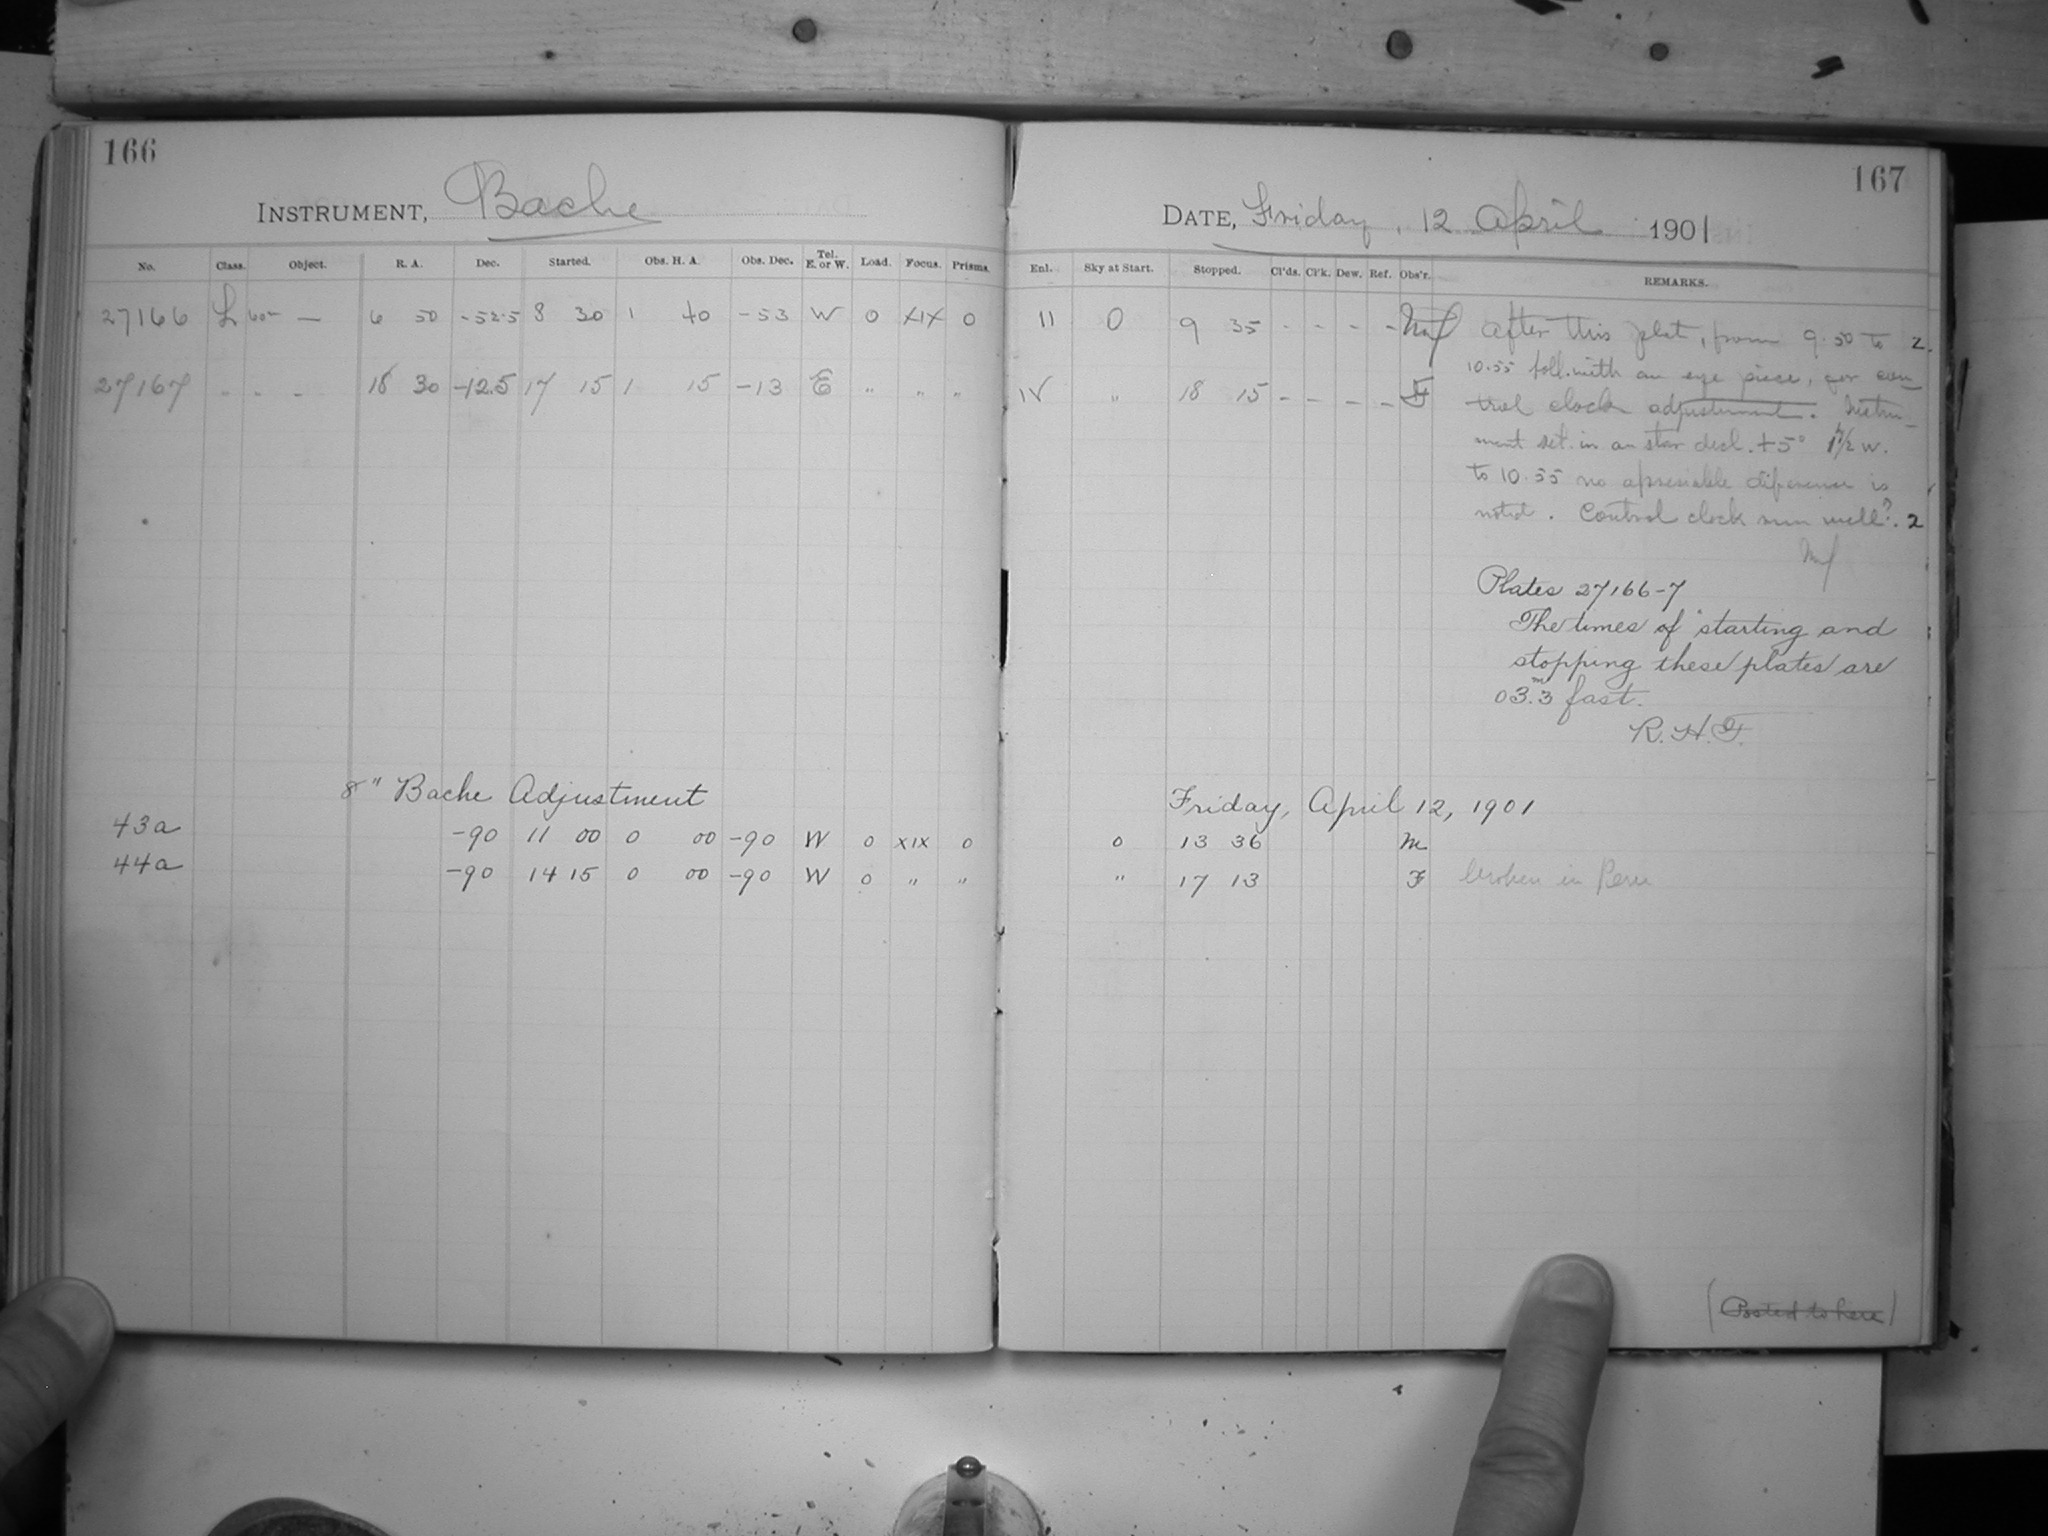 166
INSTRUMENT, Bache
No. Class. Object. R. A. Dec. Started. Obs. H. A. Obs. Dec. Tel. E. or W. Load. Focus. Prisms.
27166 L 60m — 6 50 -52.5 8 30 1 40 -53 W 0 XIX 0
27167 " " - 18 30 -12.5 17 15 1 15 -13 E " " "
8" Bache Adjustment
43a -90 11 00 0 00 -90 W 0 XIX 0
44a -90 14 15 0 00 -90 W 0 " "
167
DATE, Friday, 12 April 1901
Enl. Sky at Start. Stopped. Cl'ds. Cl'k. Dew. Ref. Obs'r. REMARKS.
11 0 9 35 - - - - After this plat, from 9.50 to 2.
IV " 18 15 - - - - F
10.55 foll. with an eye piece, for con-
trol clock adjustment. Instru-
ment set in an star decl. +5° 1½ w.
to 10.55 no apresiable diference is
noted. Control clock run well?. 2
Plates 27166-7
The times of starting and
stopping these plates are
03.m3 fast.
R. H. F.
Friday, April 12, 1901
0 13 36 M
" 17 13 F broken in Peru
(Posted to here)